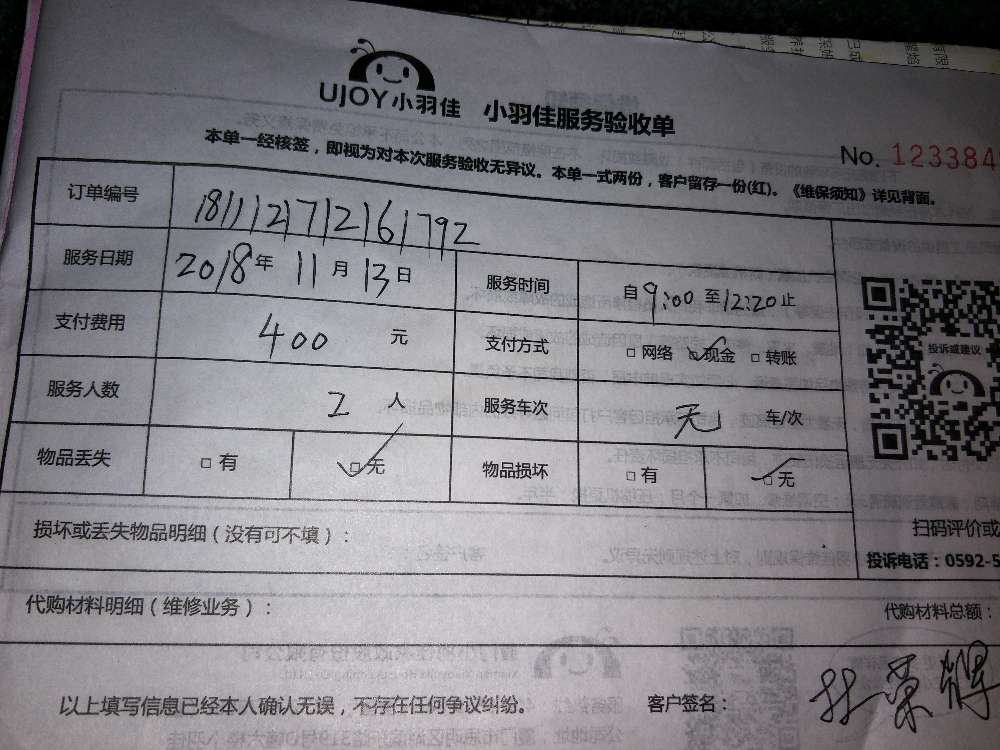 UJOY小羽佳 小羽佳服务验收单
本单一经核签，即视为对本次服务验收无异议。本单一式两份，客户留存一份(红)。《维保须知》详见背面。
No. 123384
订单编号 181112712161792
服务日期 2018年 11月 13日 服务时间 自9:00至12:20止
支付费用 400 元 支付方式 □网络 □现金 □转账
服务人数 2 人 服务车次 无 车/次
物品丢失 □有 □无 物品损坏 □有 □无
投诉或建议
损坏或丢失物品明细(没有可不填)：
扫码评价或
投诉电话：0592-5
代购材料明细(维修业务)：
代购材料总额：
以上填写信息已经本人确认无误，不存在任何争议纠纷。 客户签名： 杜荣辉